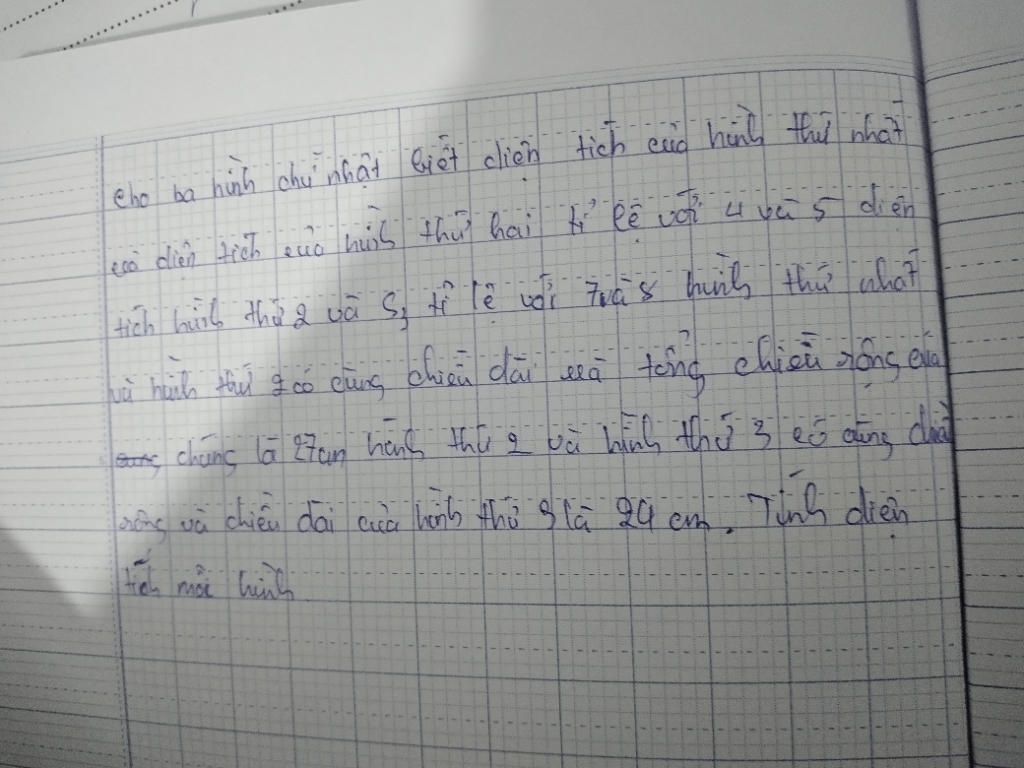 cho ba hình chữ nhật biết diện tích của hình thứ nhất
và diện tích của hình thứ hai tỉ lệ với 4 và 5 diện
tích hình thứ 2 và S3 tỉ lệ với 7 và 8 hình thứ nhất
và hình thứ 2 có cùng chiều dài và tổng chiều rộng của
chúng là 27cm hình thứ 2 và hình thứ 3 có cùng chiều
rộng và chiều dài của hình thứ 3 là 24 cm. Tính diện
tích mỗi hình